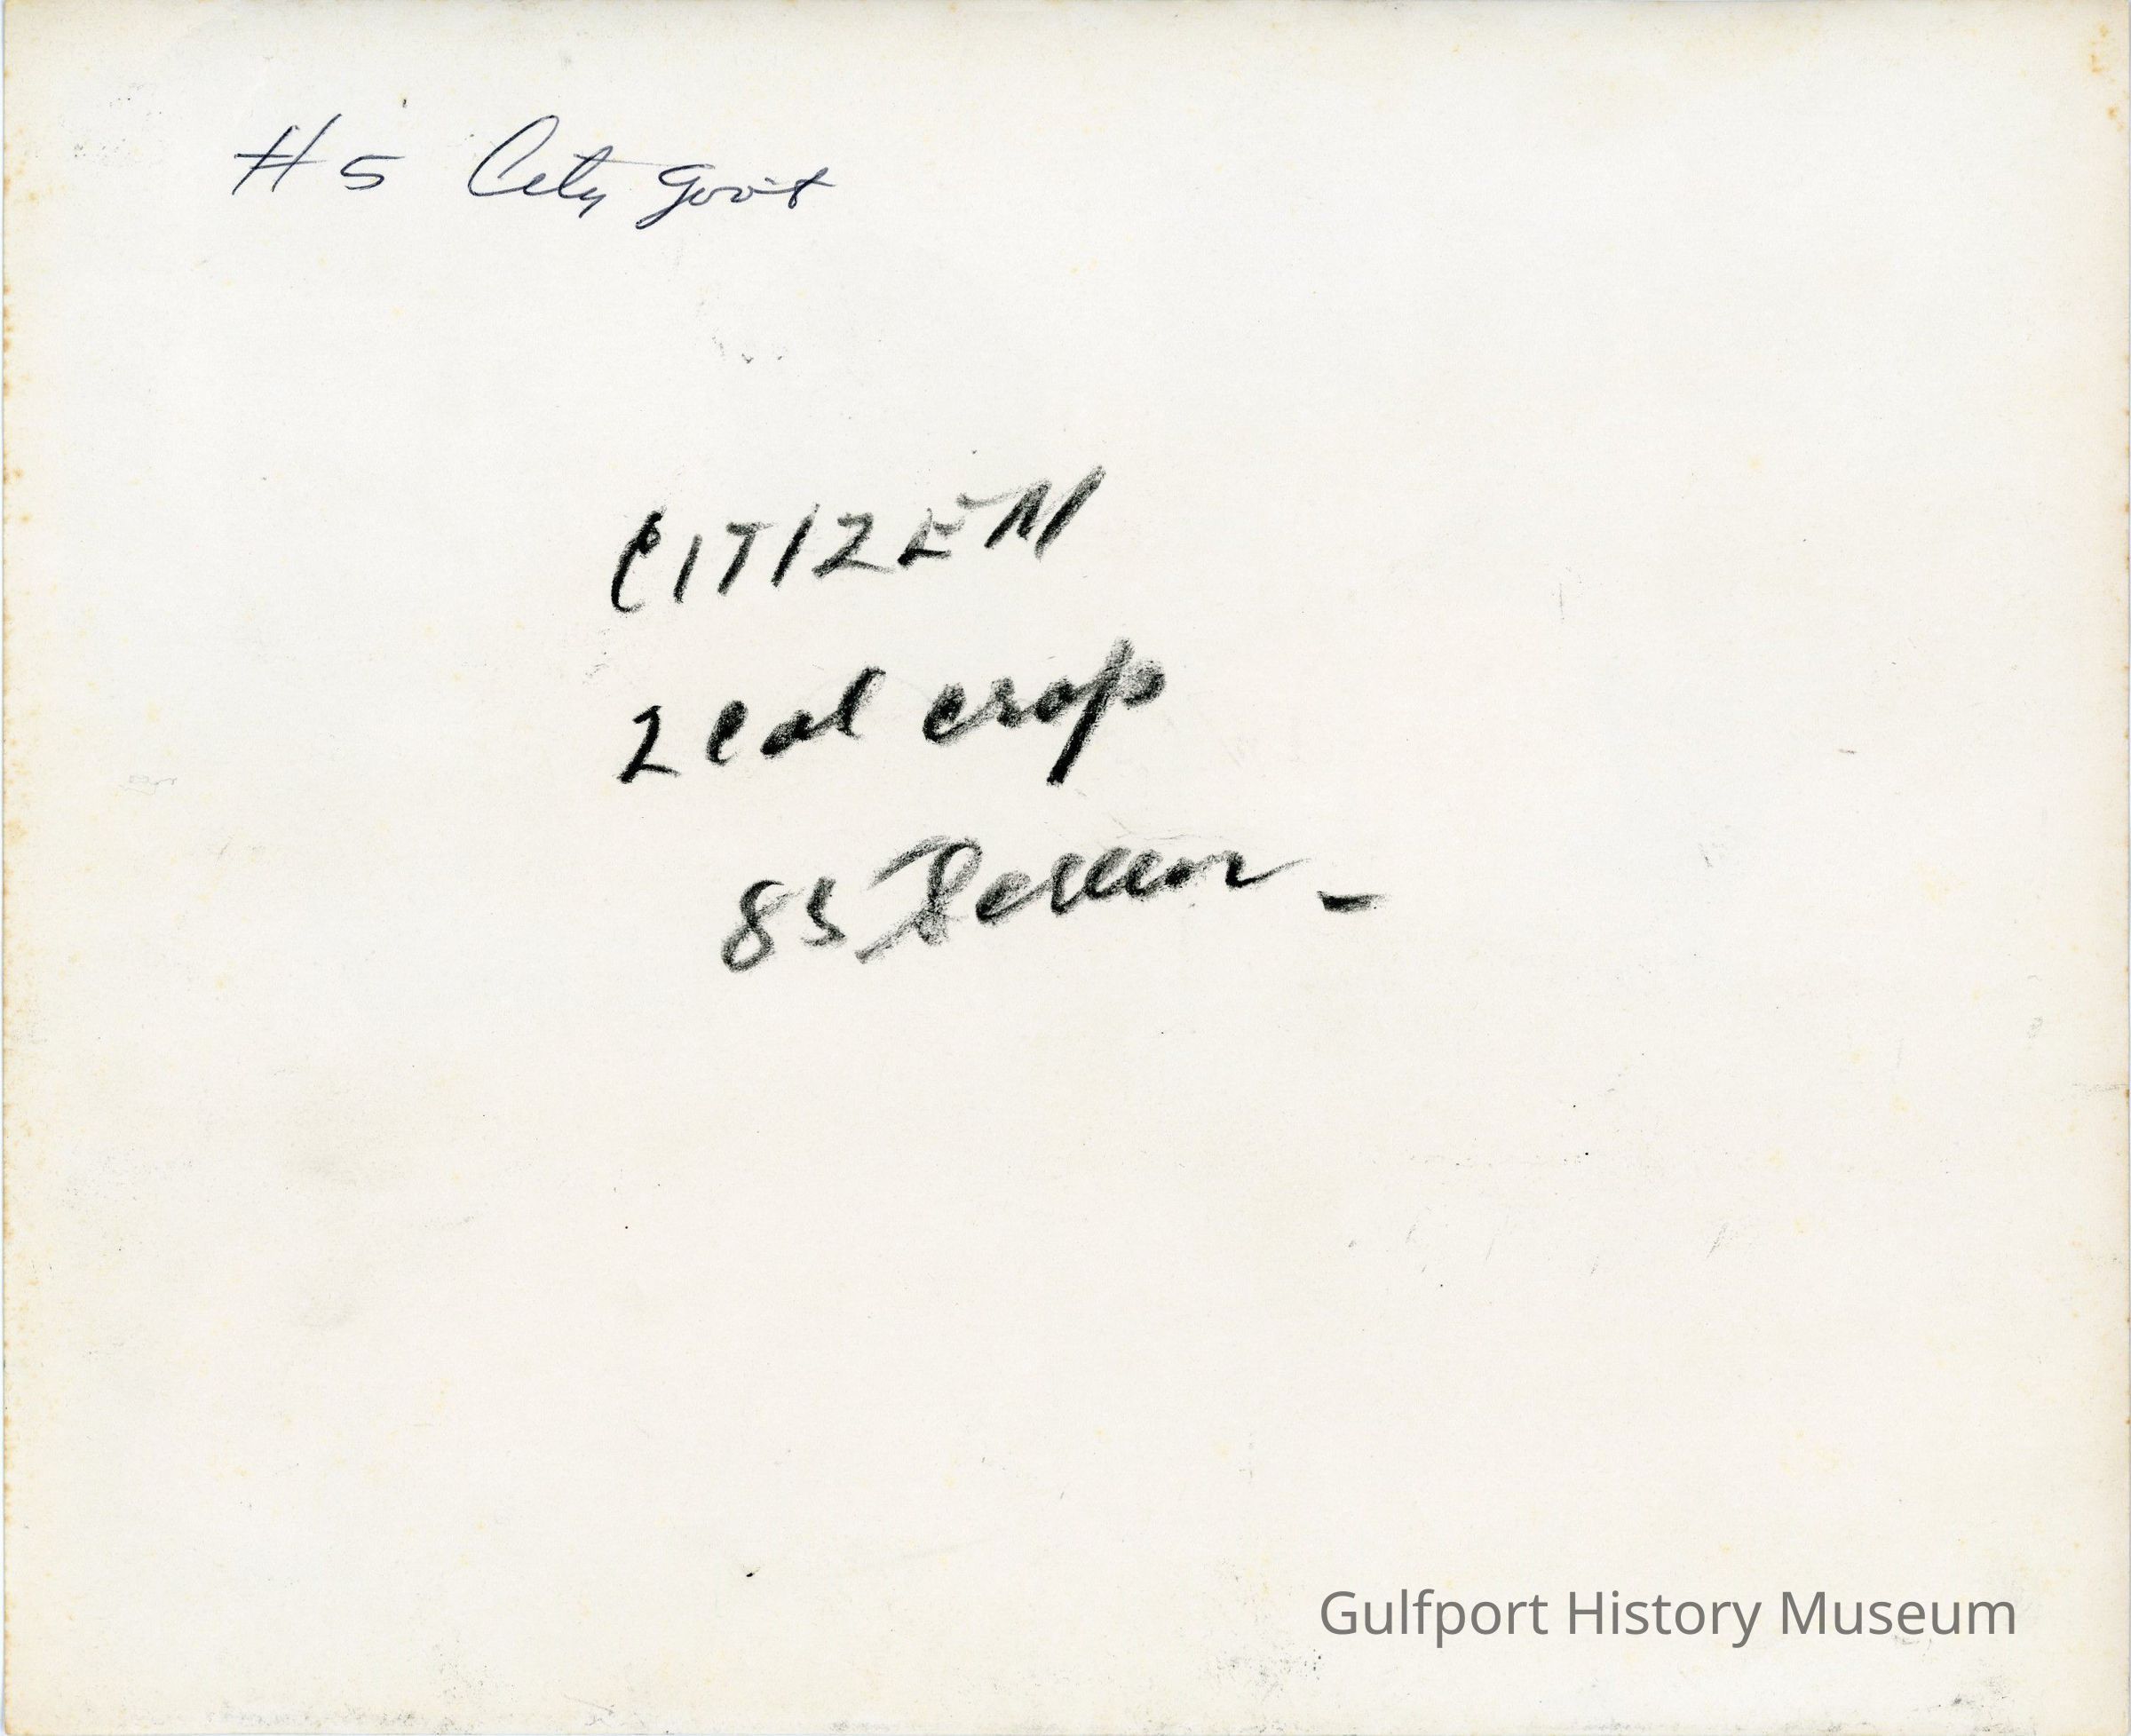 #5 City Gov't
CITIZEN
2 col crop
85 Screen -
Gulfport History Museum